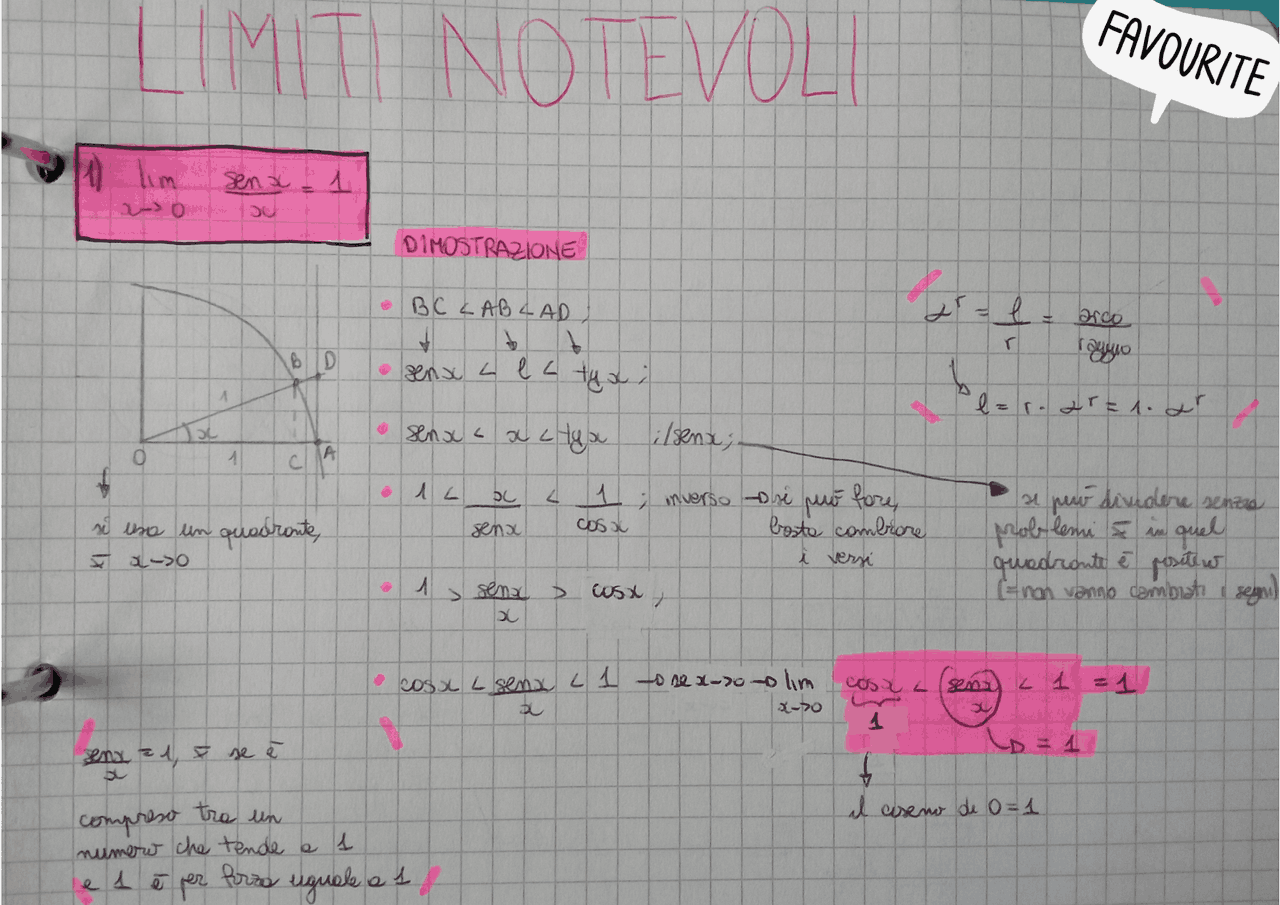 LIMITI NOTEVOLI
FAVOURITE
1) lim sen x / x = 1
x→0
DIMOSTRAZIONE
• BC < AB < AD ;
↓ ↓ ↓
• sen x < l < tg x ;
• sen x < x < tg x ; : / sen x ;
• 1 < x / sen x < 1 / cos x ; inverso → si può fare,
basta cambiare
i versi
• 1 > sen x / x > cos x ,
• cos x < sen x / x < 1 → se x→0 → lim cos x < sen x / x < 1 = 1
x→0
1
→ = 1
↓
il coseno di 0 = 1
αʳ = l / r = arco / raggio
↳ l = r · αʳ = 1 · αʳ
si può dividere senza
problemi in quel
quadrante è positivo
(= non vanno cambiati i segni)
B D
1
x
O 1 C A
↓
si usa un quadrante,
x→0
sen x / x = 1, se è
compreso tra un
numero che tende a 1
e 1 è per forza uguale a 1